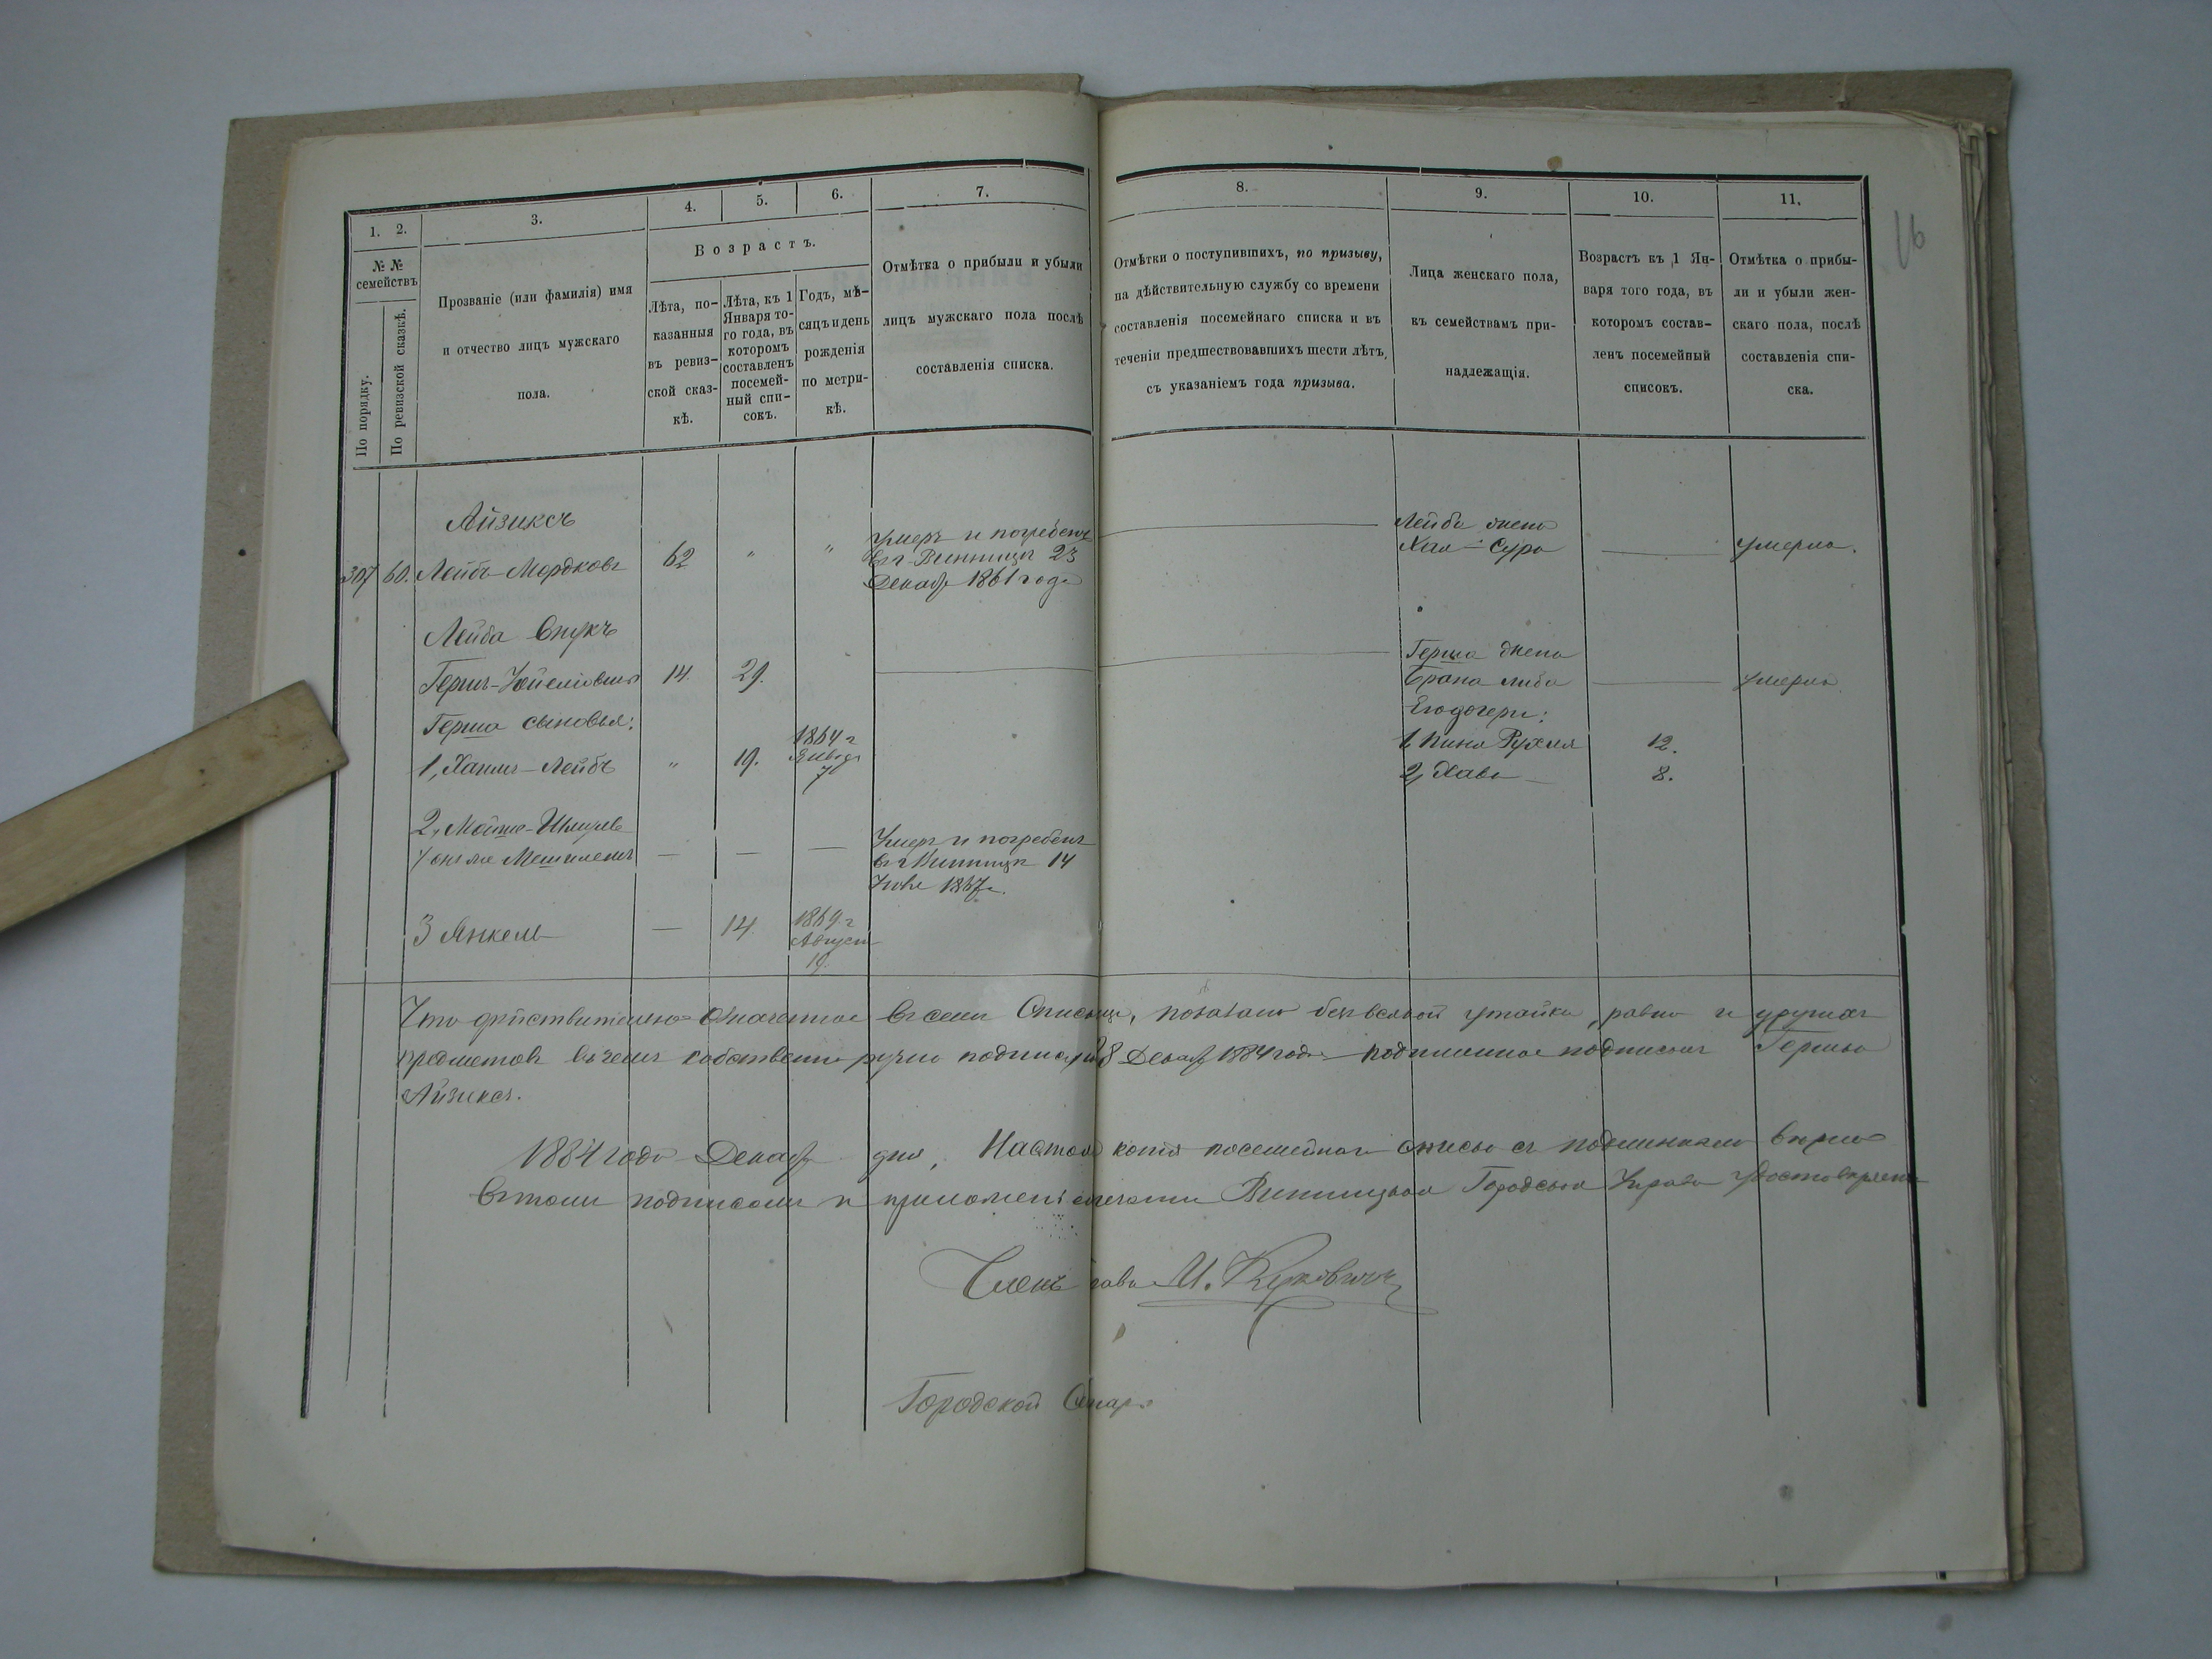 16
1. 2. 3. 4. 5. 6. 7. 8. 9. 10. 11.
№ №
семействъ
По порядку.
По ревизской сказкѣ.
Прозваніе (или фамилія) имя
и отчество лицъ мужскаго
пола.
Возрастъ.
Лѣта, по-
казанныя
въ ревиз-
ской сказ-
кѣ.
Лѣта, къ 1
Января то-
го года, въ
которомъ
составленъ
посемей-
ный спи-
сокъ.
Годъ, мѣ-
сяцъ и день
рожденія
по метри-
кѣ.
Отмѣтка о прибыли и убыли
лицъ мужскаго пола послѣ
составленія списка.
Отмѣтки о поступившихъ, по призыву,
на дѣйствительную службу со времени
составленія посемейнаго списка и въ
теченіи предшествовавшихъ шести лѣтъ,
съ указаніемъ года призыва.
Лица женскаго пола,
къ семействамъ при-
надлежащія.
Возрастъ къ 1 Ян-
варя того года, въ
которомъ состав-
ленъ посемейный
списокъ.
Отмѣтка о прибы-
ли и убыли жен-
скаго пола, послѣ
составленія спи-
ска.
Айзиксъ
307 60. Лейбъ Мордковъ 62 " "
умеръ и погребенъ
въ г Винницѣ 23
Декаб 1861 года
Лейба жена
Хая-Сура — умерла.
Лейба внукъ
Гершъ- 14. 29.
Герша жена
Брана либа — умерла
Герша сыновья:
Его дочери:
1, Лейбъ " 19. 1864 г
7
1, Рухля 12.
2, Хава 8.
2, Мошко-
онъ же — — —
Умеръ и погребенъ
въ г Винницѣ 14
1867 г.
3 Янкель — 14. 1869 г
Август
19.
Что дѣйствительно означенное въ семъ показано безъ всякой утайки, равно и другихъ
предметовъ въ чемъ собственноручно 8 Декаб 1884 года подлинное подписалъ Гершко
Айзиксъ.
1884 года Декаб дня, копія посемейнаго списка съ подлинникомъ вѣрна
въ томъ подписомъ и печати Винницкая Городская Управа
Членъ М.
Городской